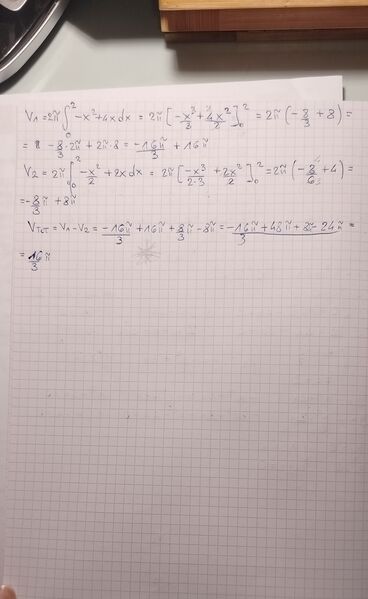 V1 = 2π ∫₀² -x²+4x dx = 2π [-x³/3 + 4x²/2]₀² = 2π (-8/3 + 8) =
= -8/3·2π + 2π·8 = -16π/3 + 16π
V2 = 2π ∫₀² -x²/2 + 2x dx = 2π [-x³/(2·3) + 2x²/2]₀² = 2π (-8/6 + 4) =
= -8/3 π + 8π
VTOT = V1 - V2 = -16π/3 + 16π + 8/3 π - 8π = (-16π + 48π + 8π - 24π)/3 =
= 16/3 π